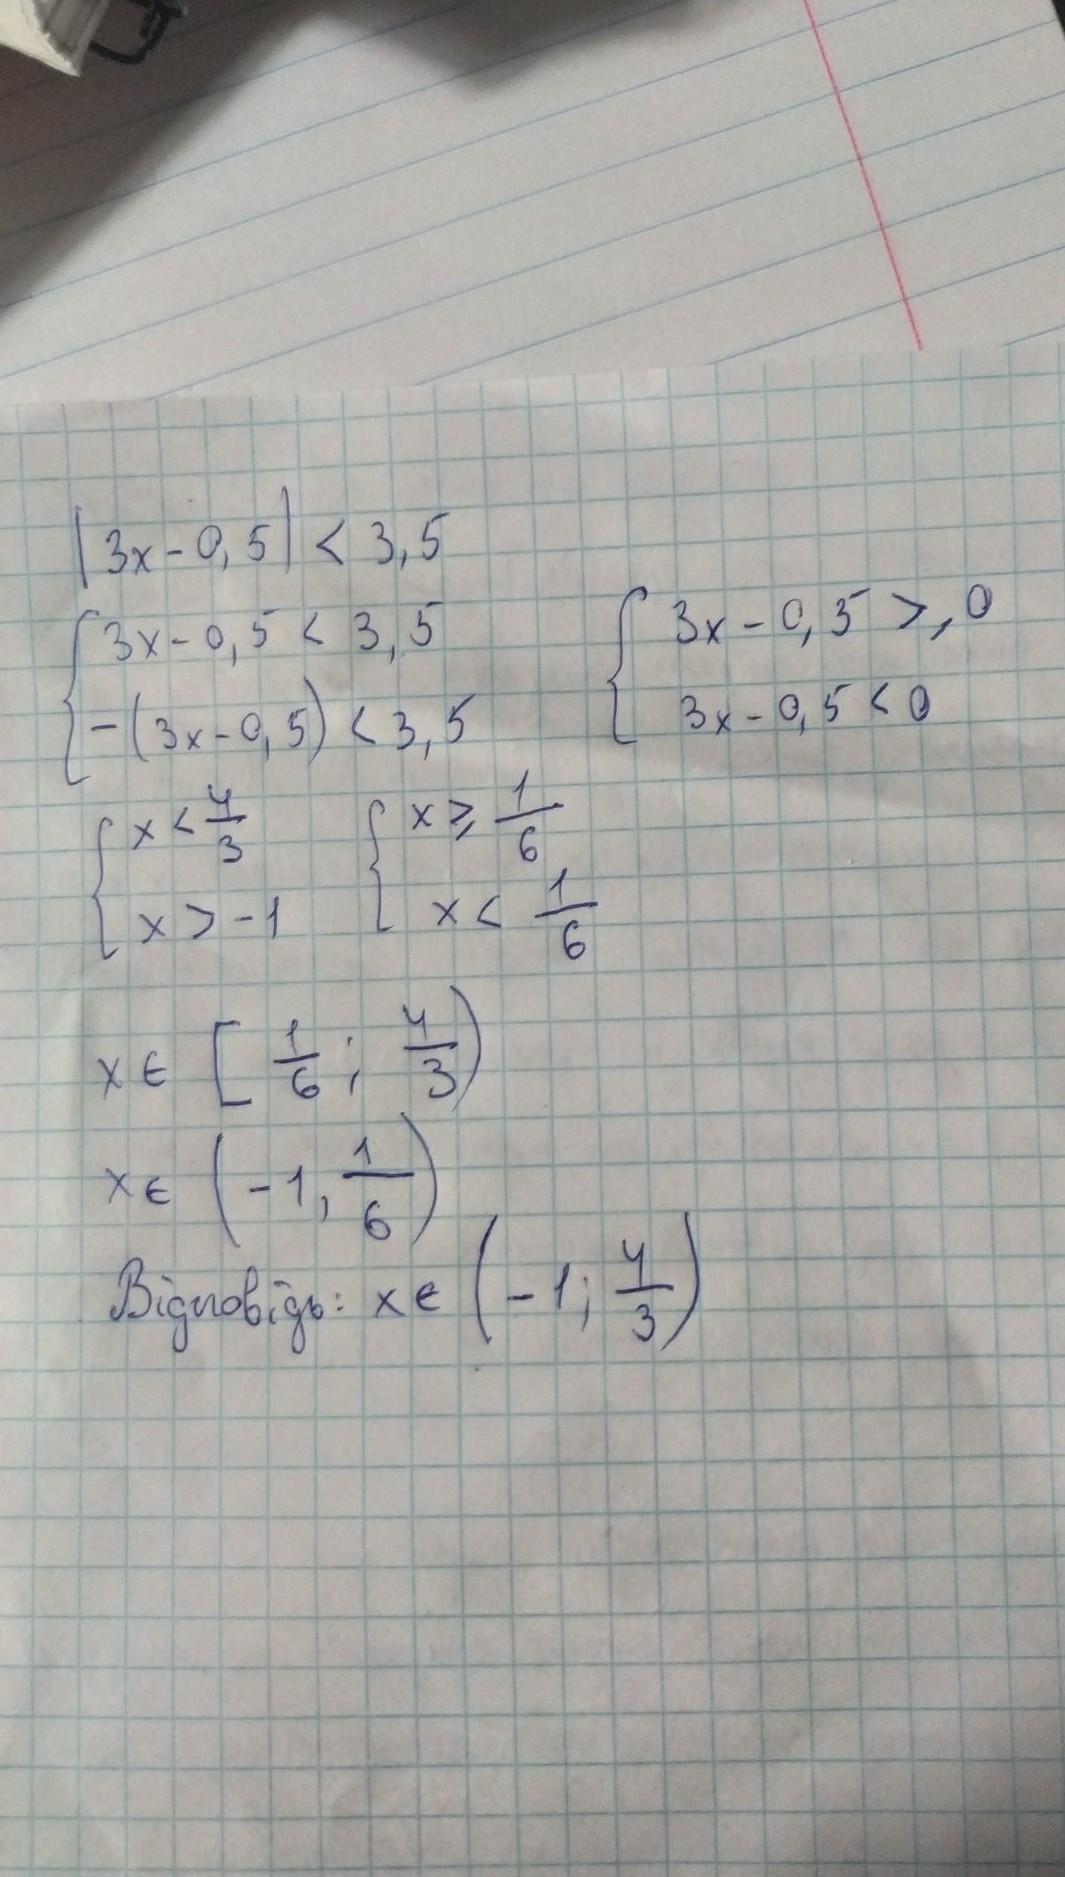 |3x - 0,5| < 3,5
{ 3x - 0,5 < 3,5 { 3x - 0,5 ⩾ 0
- (3x - 0,5) < 3,5 3x - 0,5 < 0
{ x < 4/3 { x ⩾ 1/6
x > -1 x < 1/6
x ∈ [1/6; 4/3)
x ∈ (-1, 1/6)
Відповідь: x ∈ (-1; 4/3)